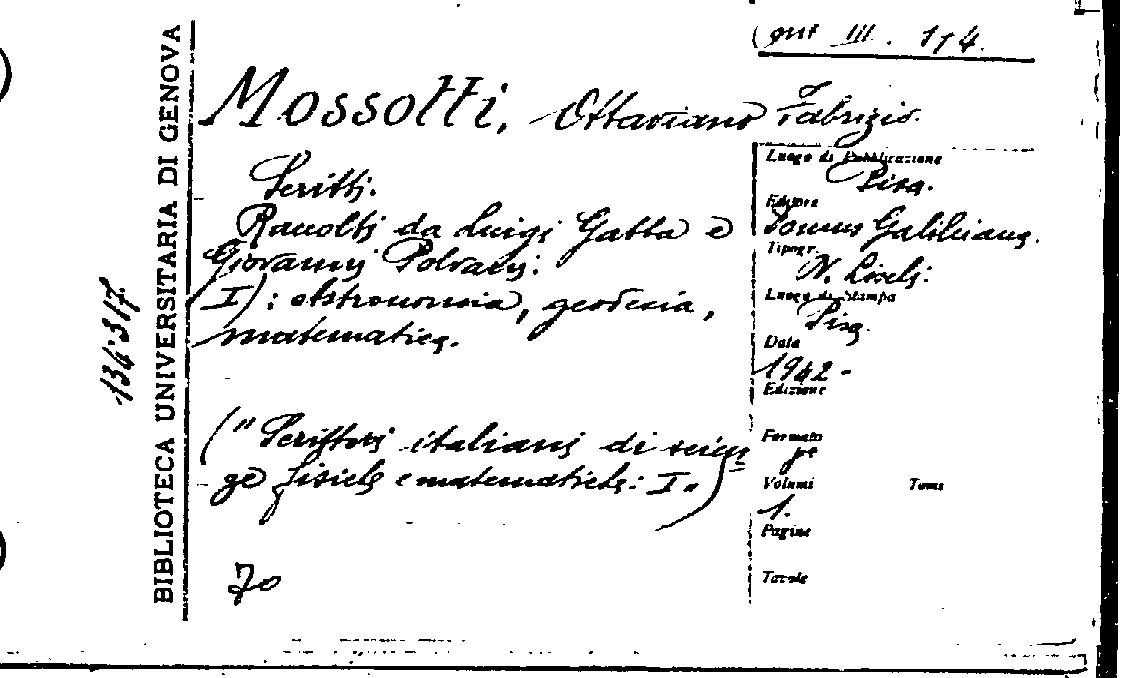 III. 174.
Mossotti, Ottaviano Fabrizio.
Scritti.
Racolti da Luigi Gatta e
Giovanni Polvani:
(I): Astronomia, geodesia,
matematica.
("Scrittori italiani di scien=
ze fisiche e matematiche: I")
70
Luogo di Pubblicazione
Pisa.
Editore
Domus Galilaeana.
Tipogr.
N. Lischi:
Luogo di Stampa
Pisa.
Data
1942-
Edizione
Formato
Volumi Tomi
1.
Pagine
Tavole
BIBLIOTECA UNIVERSITARIA DI GENOVA
134317